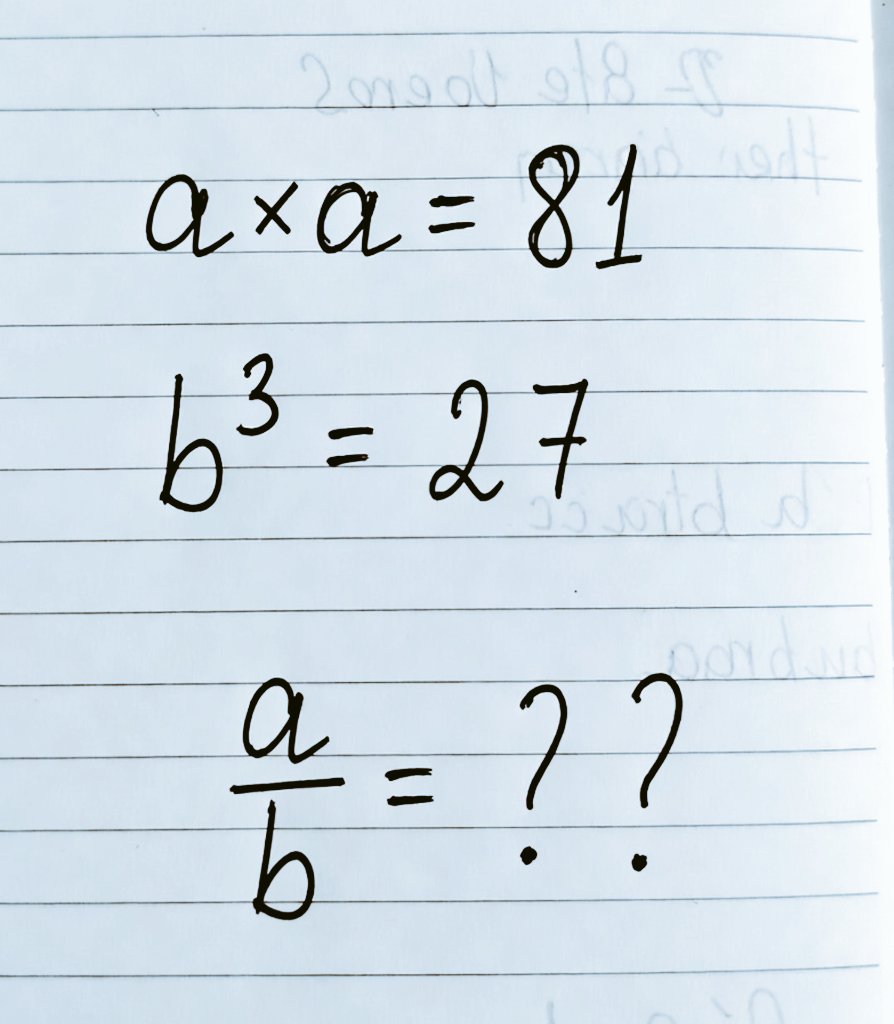 a × a = 81
b³ = 27
a/b = ??